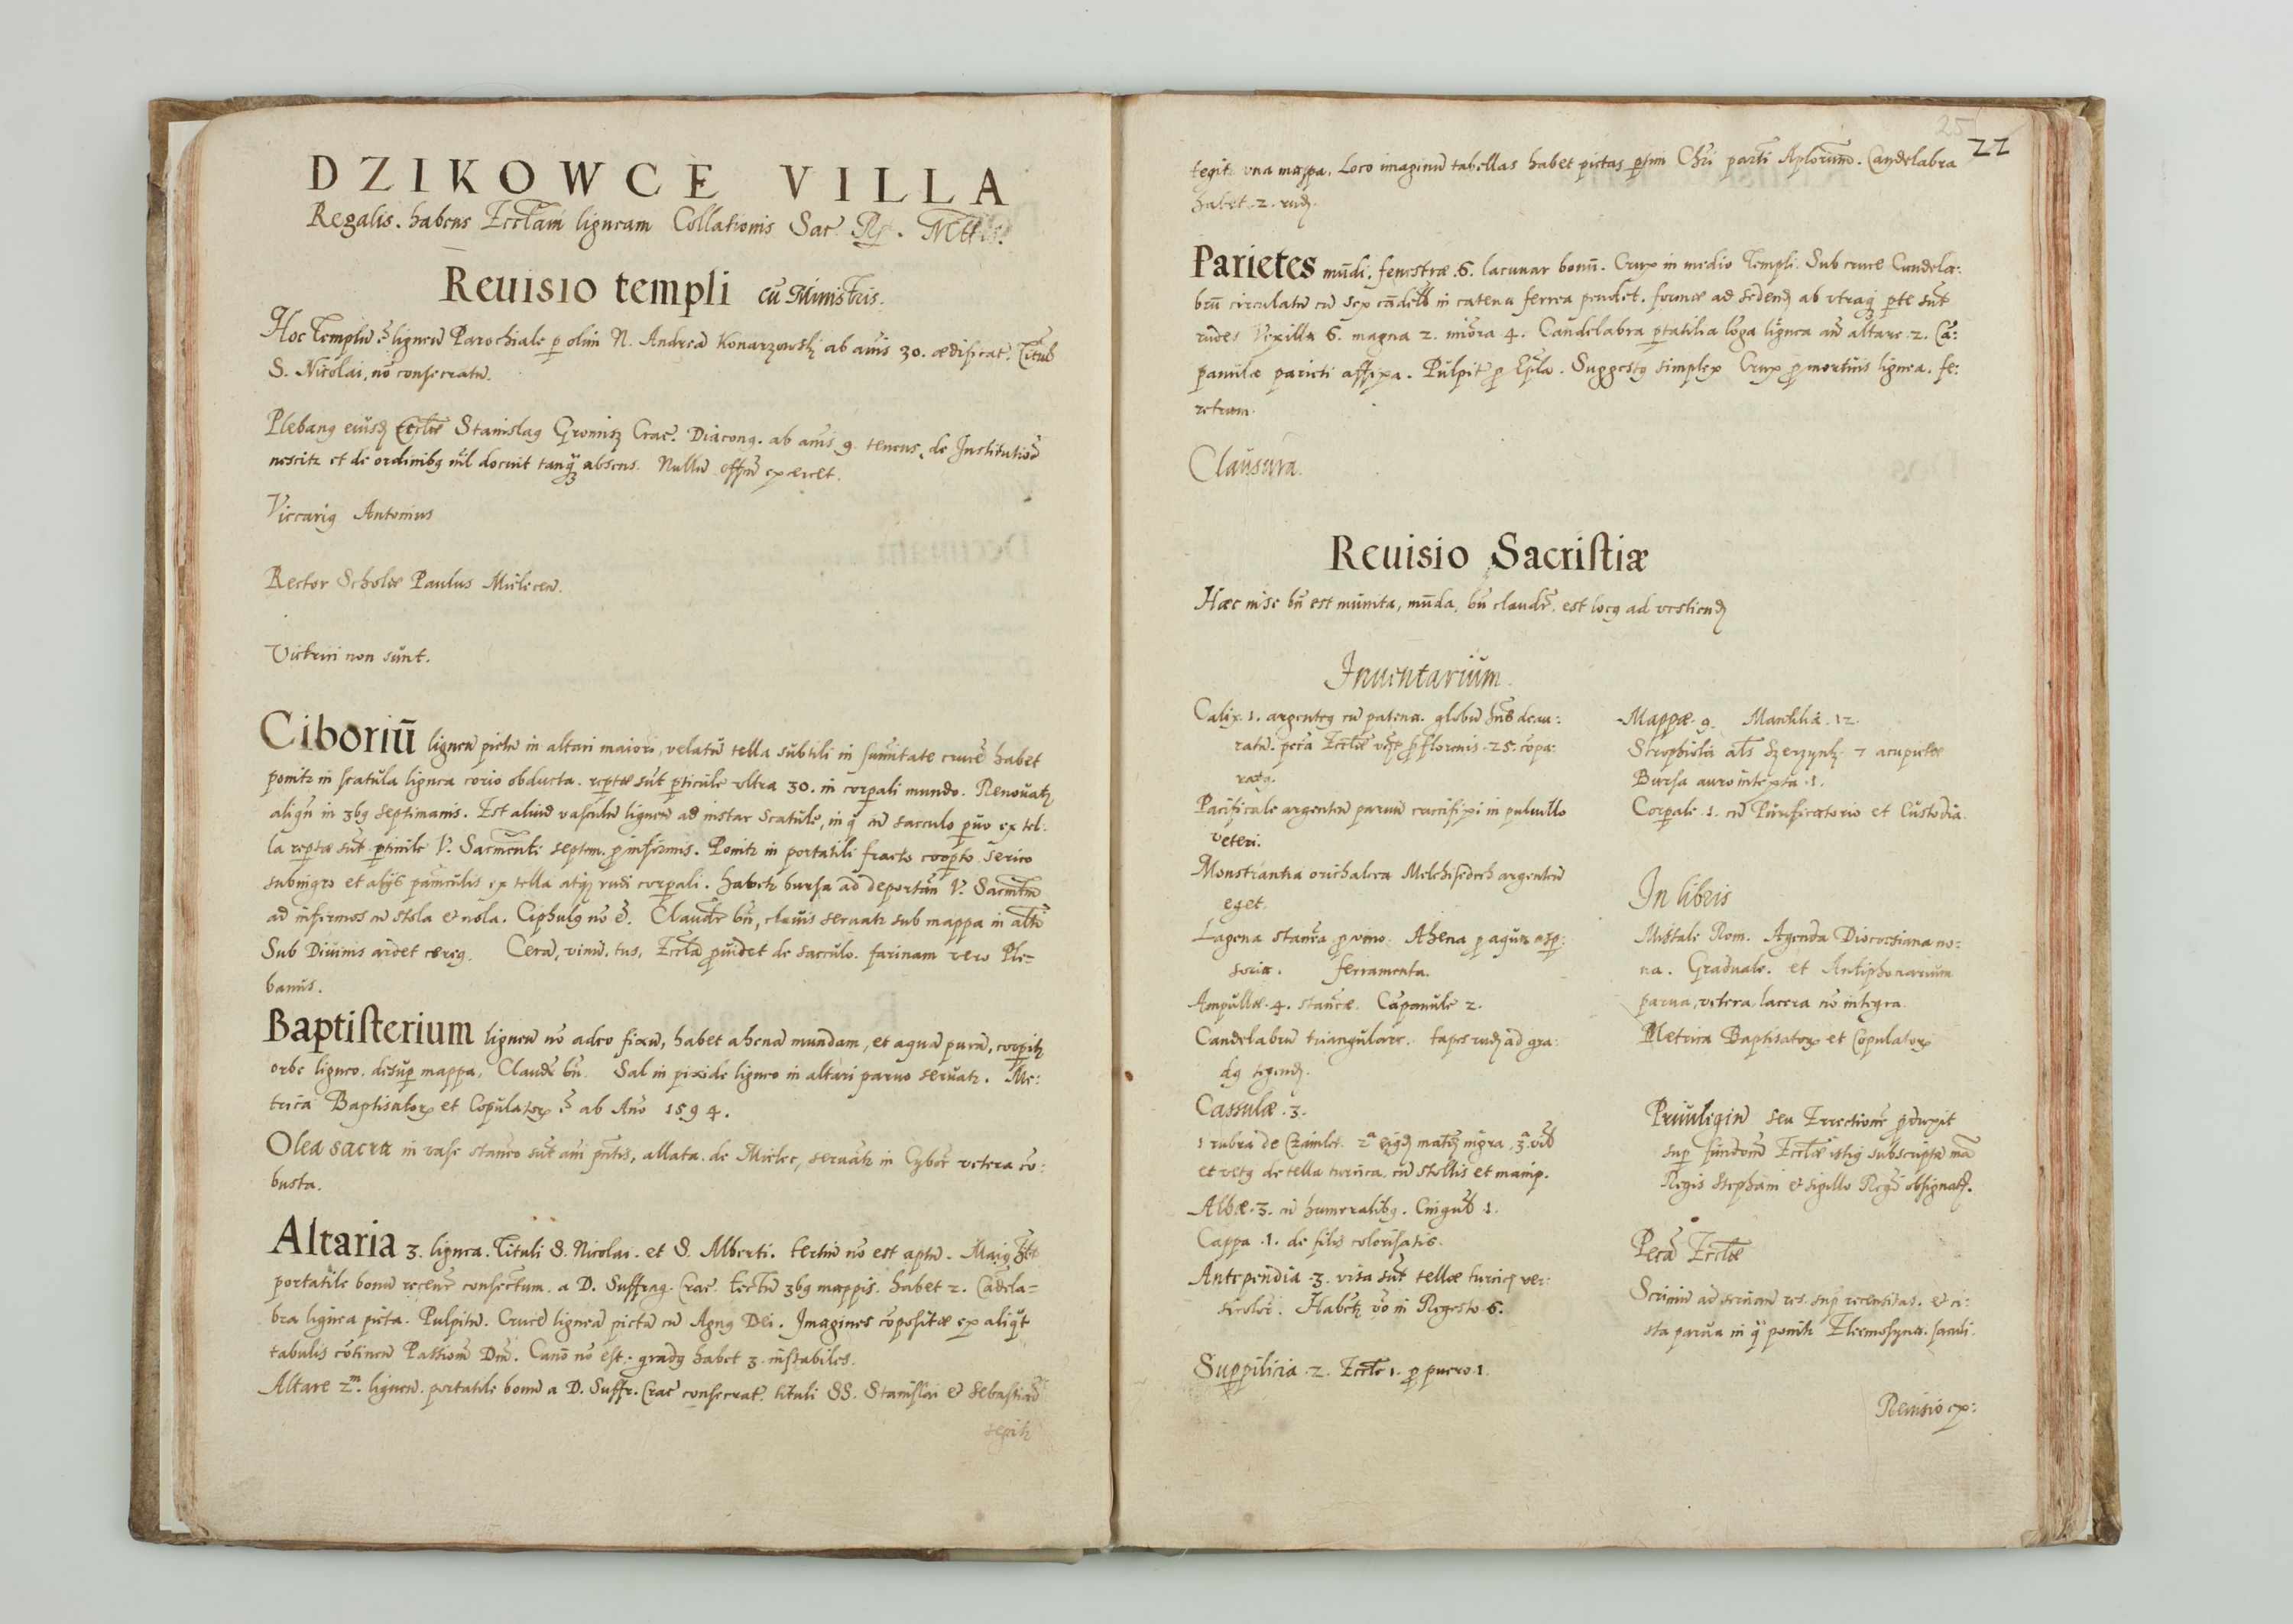 DZIKOWCE VILLA
Regalis. habens Eccťam ligneam Collationis Sac. Rę. Mttis.
Reuisio templi cū Ministris.
Hoc Templū ē ligneū Parochiale p olim N. Andreā Konarzowskj ab anis 30. ædificat. Titul
S. Nicolai, nō consecratū.
Plebang eiusd Ecctiæ Stanislag Gromisz Crac. Diacong. ab anis 9. tenens, de Institutiōe
nescitr et de ordinibg nil docuit tanq absens. Nullū offm exercet.
Viccarig Antonius
Rector Scholæ Paulus Mielecen.
Vitrici non sunt.
Ciboriū ligneū pictū in altari maiori, velatū tella subtili in sumitate crucē habet
ponitr in scatula lignea corio obducta. reptæ sūt pticule vltra 30. in corpali mundo. Renouatr
aliqn in 3bg septimanis. Est aliud vasculū ligneū ad instar Scatulæ, in q in sacculo puo ex tel:
la reptæ sūt pticule V. Sacmenti septem p infirmis. Ponitr in portatili fracto coopto serico
subnigro et alijs paniculis ex tella atq rudi corpali. habetr bursa ad deportan V. Sacmtm
ad infirmos cū stola et nola. Ciphulg nō ē. Clauditr bn, clauis seruatr sub mappa in altri
Sub Diuinis ardet cereg. Cerā, vinū, tus, Eccta puidet de sacculo. farinam vero Ple-
banus.
Baptisterium ligneū nō adeo fixū, habet ahenā mundam, et aquā purā, coopitr
orbe ligneo. desup mappa, Claudr bn. Sal in pixide ligneo in altari paruo seruatr. Me:
trica Baptisatorx et Copulatorx ē ab Ano 1594.
Olea sacra in vase staneo sūt ani pntis, allata de Mielec, seruatr in Cybor vetera cō:
busta.
Altaria 3. lignea. Tituli S. Nicolai. et S. Alberti. tertiū nō est aptū. Maig
portatile bonū recent consectum. a D. Suffrag. Crac. tectū 3bg mappis. habet 2. Cādela-
bra lignea picta. Pulpitū. Crucē ligneā pictā cū Agng Dei. Imagines cōpositæ ex aliqt
tabulis cōtinen Passionē Dni. Canō nō est. gradg habet 3. instabiles.
Altare 2m. ligneū. portatile bonū a D. Suffr. Crac consecrat. tituli SS. Stanislai et Sebastiani
tegitr
25
22
tegitr vna mappa. Loco imaginū tabellas habet pictas Chri Aplorum. Candelabra
habet 2. rud.
Parietes mūdi. fenestræ 6. lacunar bonū. Crux in medio Templi. Sub cruce Candela:
brū circulatū cū sex cādelis in catena ferrea pendet. formæ ad sedend ab vtraq pte sūt
rudes Vexilla 6. magna 2. miōra 4. Candelabra ptatilia lōga lignea an altare 2. Cā:
panulæ parieti affixa. Pulpit p Epla. Suggestg simplex Crux p mortuis lignea. fe:
retrum.
Clausura.
Reuisio Sacristiæ
Hæc in se bn est munita, mūda, bn claudr, est locg ad vestiend
Inuentarium.
Calix 1. argenteg cū patena. globū deau:
ratū. pecia Ecctiæ florenis 25. cōpa:
ratg.
Pacificale argenteū paruū crucifixi in puluillo
veteri.
Monstrantia orichalcea Melchisedech argenteū
eget.
Lagena stanea p vino. Ahena p aqua asp:
soria. ferramenta.
Ampullæ 4. staneæ. Cāpanule 2.
Candelabrū triangulare. tapes rud ad gra:
dg tegend.
Cassulæ 3.
1 rubra de Czamlet. 2a eigd mater nigra, 3a
et vetg de tella turcica, cū stollis et manip.
Albæ 3. cū humeralibg. Cingul 1.
Cappa 1. de filis colorisatis.
Antependia 3. visa sūt tellæ turciq ver:
sicolor. Habetr vō in Regesto 6.
Suppilicia 2. Eccte 1. p puero 1.
Mappæ 9. Mantilia 12.
Strophiola als Szerzynk 7 acupictæ
Bursa auro intexta 1.
Corpale 1. cū Purificatorio et Custodia.
In libris
Missale Rom. Agenda Diocesiana no:
ua. Graduale et Antiphonarium
parua, vetera, lacera nō integra.
Metrica Baptisatorx et Copulatorx
Priuilegiū seu Erectionē pduxit
sup fundum Ecctiæ istig subscripta mā
Regis Stephani et sigillo obsignat.
Pecā Ecctiæ
Scriniū ad seruan res. sup recensitas. et ci:
sta parua in q ponitr Elemosyna. sacculi.
Reuisio ex: